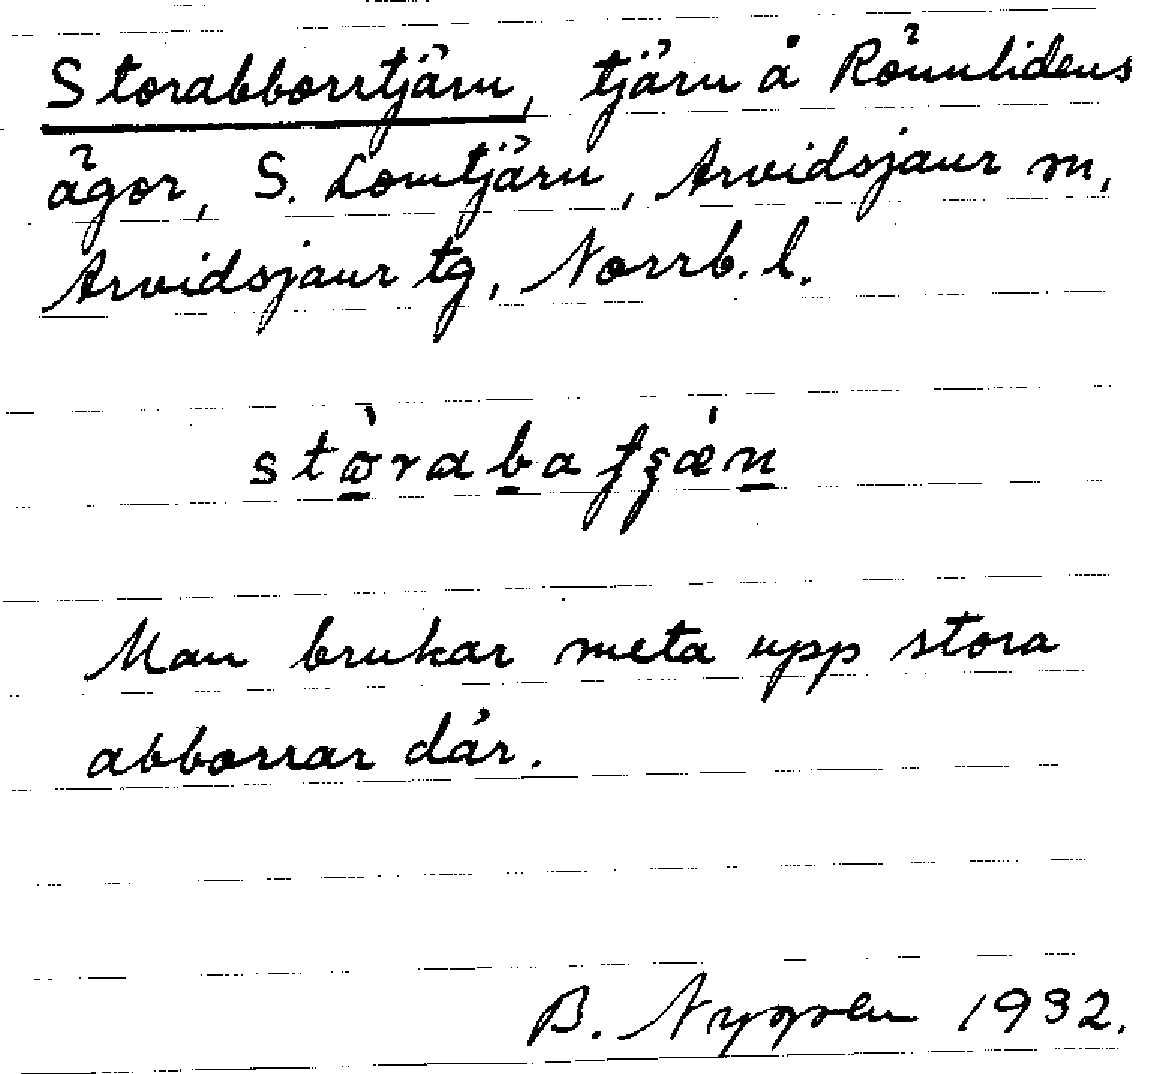 Storabborrtjärn, tjärn å Rönnlidens
ägor, S. Lomtjärn, Arvidsjaur sn,
Arvidsjaur tg, Norrb. l.
Man brukar meta upp stora
abborrar där.
B. Nygren 1932.